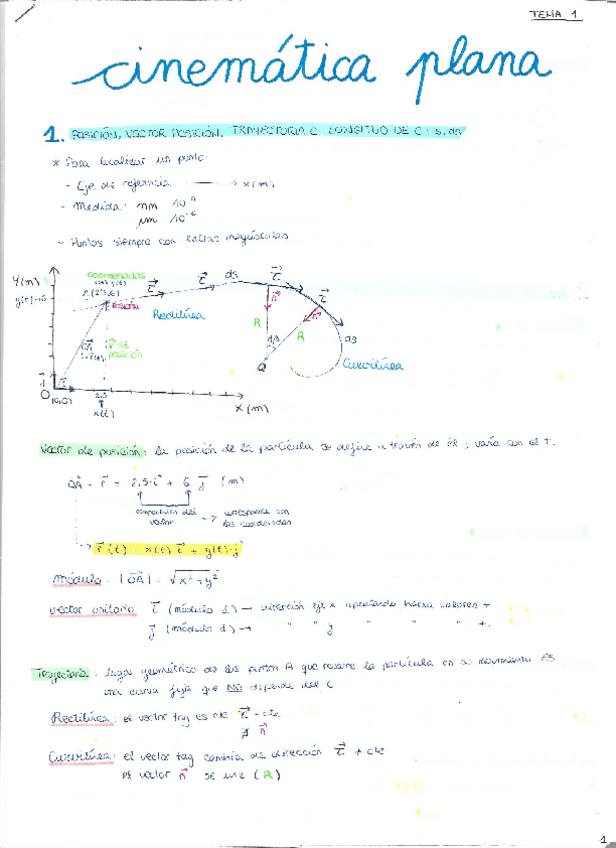 TEMA 1
cinemática plana
1. POSICIÓN, VECTOR POSICIÓN, TRAYECTORIA C LONGITUD DE C: s, ds
* Para localizar un punto:
- Eje de referencia → x(m)
- Medida: nm 10⁻⁹
μm 10⁻⁶
- Puntos siempre con letras mayúsculas
Y(m)
coordenadas
A (2'5,6)
POSICIÓN
Rectilínea
posición
R
R
Q
ds
Curvilínea
O
(0,0)
2,5
x(t)
X (m)
Vector de posición: la posición de la partícula se define a través de él; varía con el t.
OA = r = 2,5·i + 6 j (m)
componentes del vector → corresponde con las coordenadas
r(t) = x(t) i + y(t)·j
Módulo: |OA| = √x²+y²
vector unitario i (módulo 1) → dirección eje x apuntando hacia valores +
j (módulo 1) → " " y " " " +.
Trayectoria: lugar geométrico de los puntos A que recorre la partícula en su movimiento. ES
una curva fija que NO depende del t
Rectilínea: el vector tag es cte τ = cte
∄ n
Curvilínea: el vector tag cambia de dirección τ ≠ cte
el vector n se une (R)
1